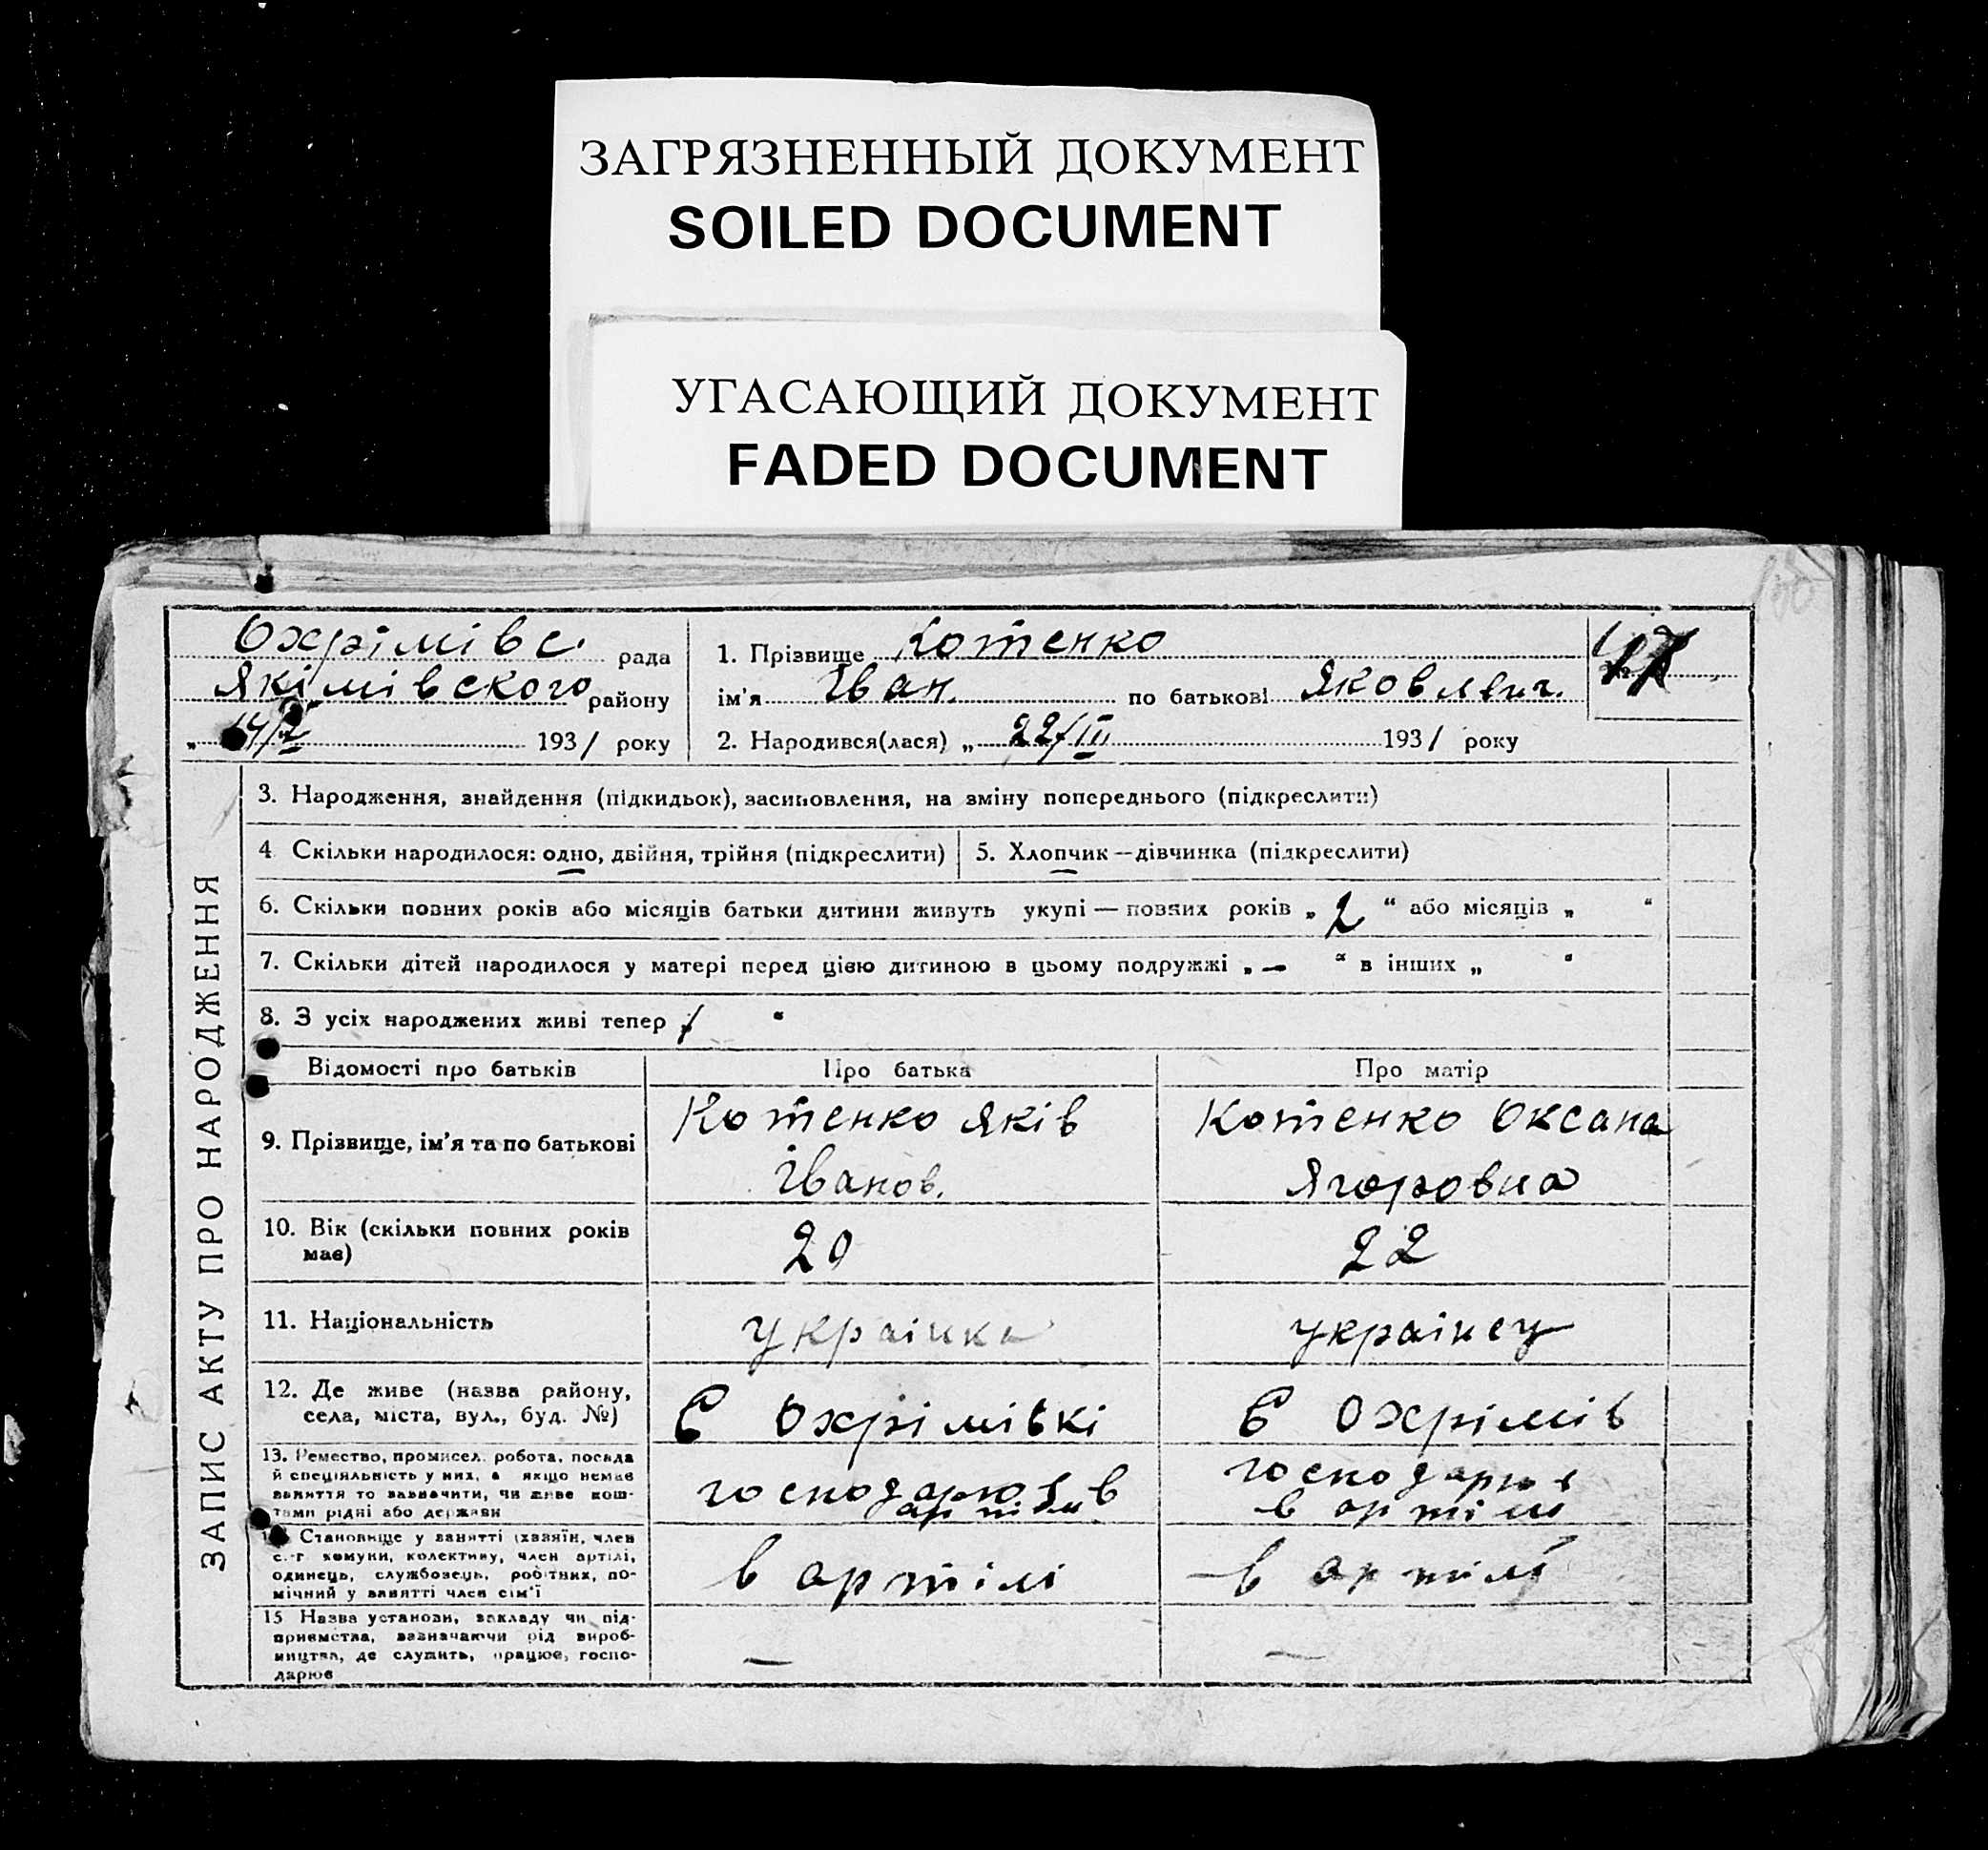 ЗАГРЯЗНЕННЫЙ ДОКУМЕНТ
SOILED DOCUMENT
УГАСАЮЩИЙ ДОКУМЕНТ
FADED DOCUMENT
Охрімівс. рада
Якімівского району
193 1 року
1. Прізвище Котенко
ім'я Іван. по батькові Яковлевич.
2. Народився(лася) „ 22/III 193 1 року
47
ЗАПИС АКТУ ПРО НАРОДЖЕННЯ
3. Народження, знайдення (підкидьок), засиновлення, на зміну попереднього (підкреслити)
4 Скільки народилося: одно, двійня, трійня (підкреслити)
5. Хлопчик—дівчинка (підкреслити)
6. Скільки повних років або місяців батьки дитини живуть укупі — повних років „ 2 “ або місяців „ “
7. Скільки дітей народилося у матері перед цією дитиною в цьому подружжі „ — “ в інших „ “
8. З усіх народжених живі тепер 1 “
Відомості про батьків Про батька Про матір
9. Прізвище, ім'я та по батькові
Котенко Яків
Іванов.
Котенко Оксана
Ягоровна
10. Вік (скільки повних років
має)
20
22
11. Національність
українка
українец
12. Де живе (назва району,
села, міста, вул., буд. №)
С Охрімівкі
С Охрімів
13. Ремество, промисел, робота, посада
й спеціяльність у них, а якщо немає
заняття то зазначити, чи живе кош-
тами рідні або держави
господарює в
артілі
господарює
в артілі
Становище у занятті (хазяїн, член
с.-г комуни, колективу, член артілі,
одинець, службовець, робітник, по-
мічний у занятті член сім'ї
в артілі
в артілі
15 Назва установи, закладу чи під-
приємства, зазначаючи рід вироб-
ництва, де служить, працює, госпо-
дарює
—
—